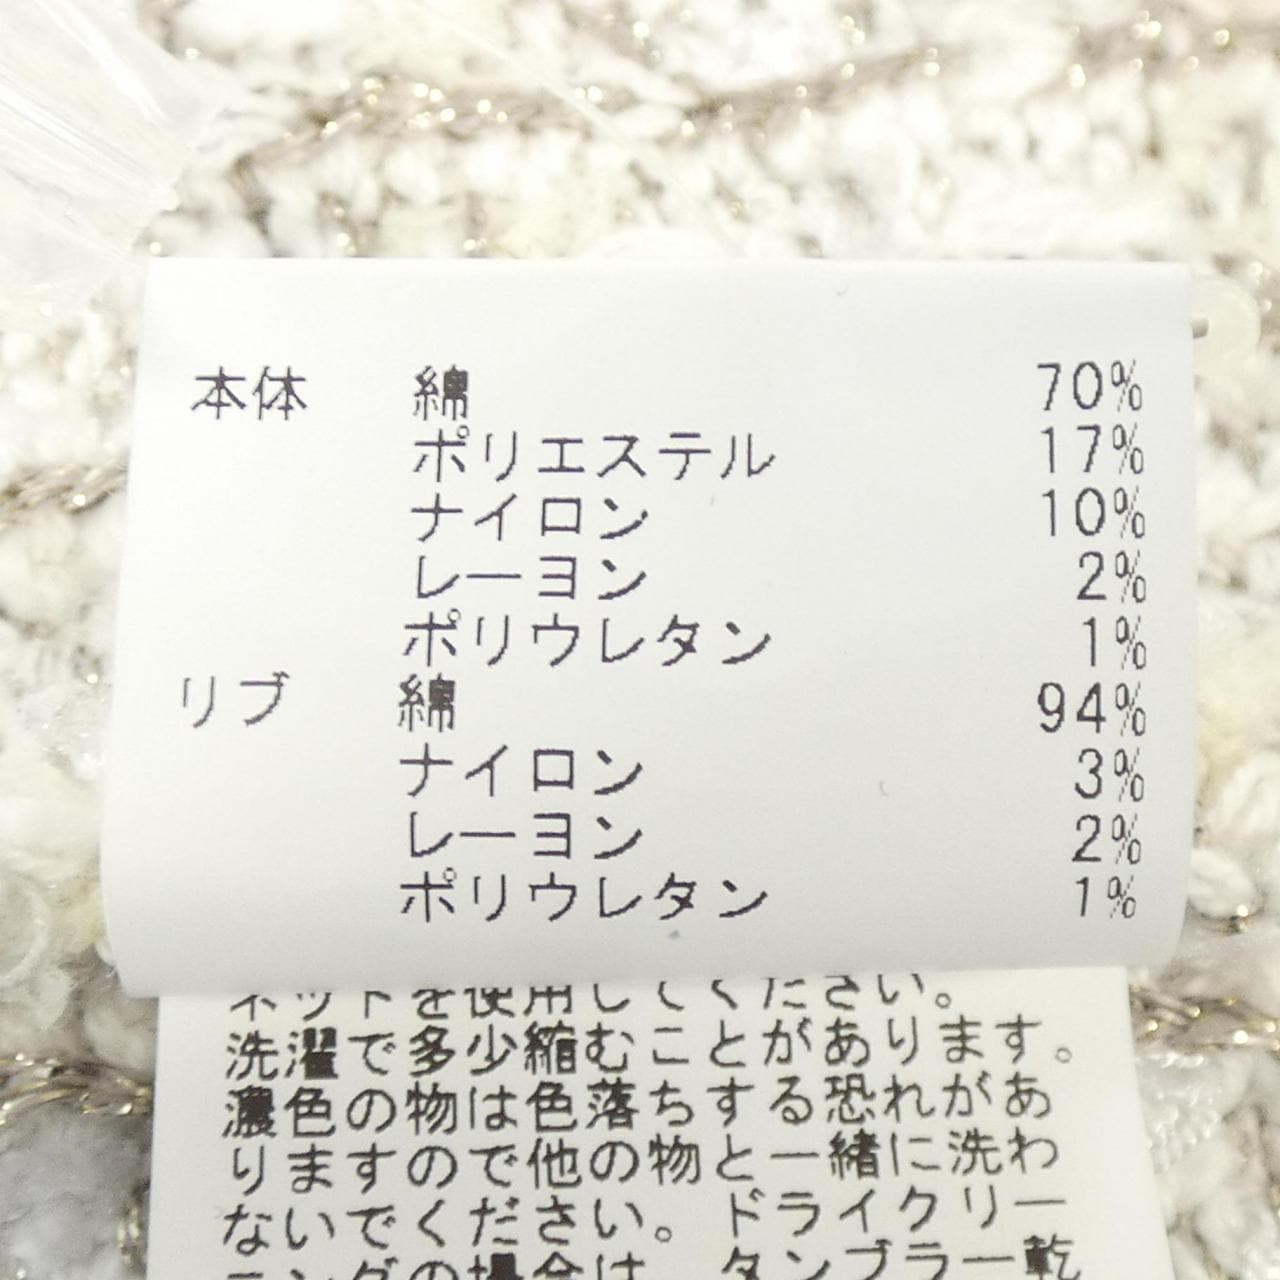 本体 綿 70%
ポリエステル 17%
ナイロン 10%
レーヨン 2%
ポリウレタン 1%
リブ 綿 94%
ナイロン 3%
レーヨン 2%
ポリウレタン 1%
ネットを使用してください。
洗濯で多少縮むことがあります。
濃色の物は色落ちする恐れがあ
りますので他の物と一緒に洗わ
ないでください。ドライクリー
ニングの場合は、タンブラー乾